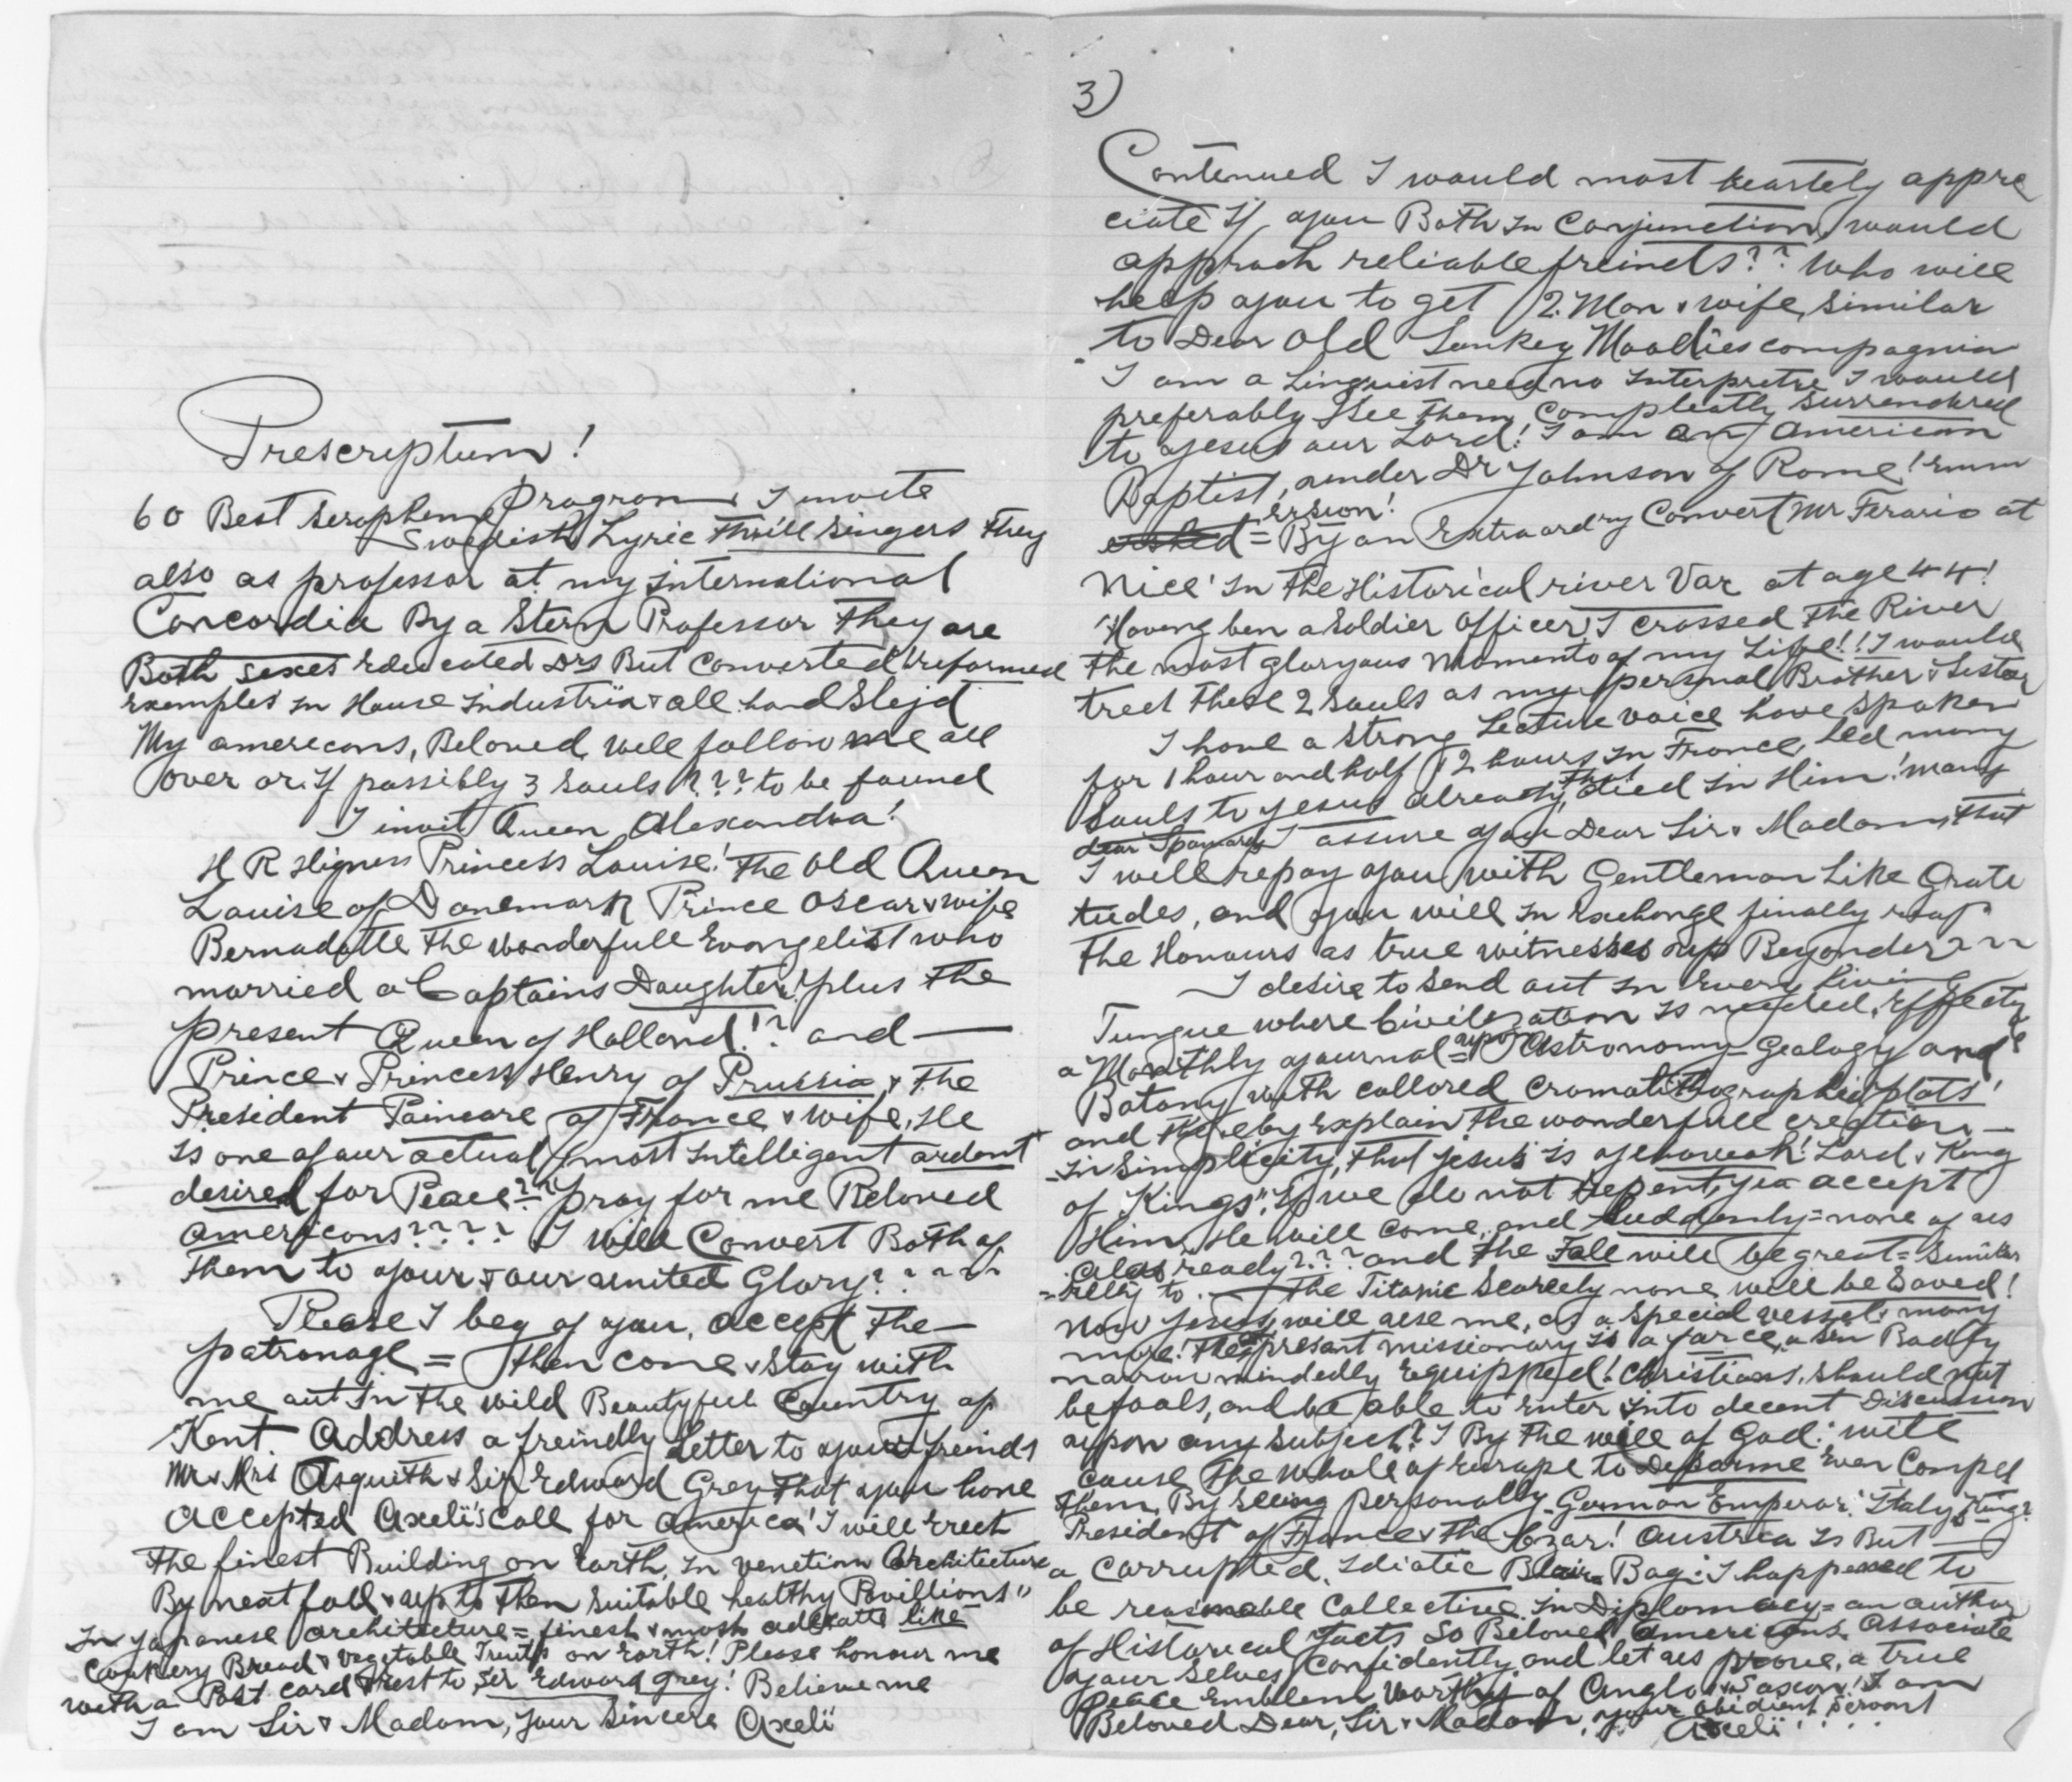 Prescriptum!
60 Best Serapheme Program I invite
Swedish Lyric Thrill Singers They
also as professor at my international
Concordia By a Stern Professor They are
Both sexes Educated Drs But Converted! reformed
Exemples in House Industria & all hand Slejd
My americans, Beloved, will follow me all
over or if possibly 3 Souls ? ? ? to be found
I invit Queen Alexandra!
H R Higness Princess Louise! The old Queen
Louise of Danemark Prince Oscar & wife
Bernadotte the wonderfull Evangelist who
married a Captains Daughter! plus the
present Queen of Holland!? and —
Prince & Princess Henry of Prussia, & the
President Poincare of France & wife, He
is one of our actual most intelligent ardent
desired for Peace?? pray for me Beloved
americons???? I will Convert Both of
Them to your & our united Glory? ? ~ ~ ~
Please I beg of you, accept the —
patronage = Then come & stay with
me out in the wild Beautyfull Country of
Kent. Address a freindly Letter to your freinds
Mr & Mrs Asquith & Sir Edward Grey That you have
accepted Axeli's call for america! I will Erect
the finest Building on Earth, in venetian Architecture
By next fall & up to then Suitable healthy Pavillions"
in yapanese architecture = finest & most like
Bread & vegetable Fruits on Earth! Please honour me
with a Post card to, Ser Edward Grey! Believe me
I am Sir & Madam, your Sincere Axeli
3)
Contenued I would most heartely appre
ciate if, you Both in Conjunction, would
approach reliable freinds?? Who will
help you to get 2. Man & wife, Similar
to Dear old Sankey Moodies compagnion
I am a Linguist need no Interpretre I would
preferably See them, Compleatly Surrendered
to yesus our Lord! I am an American
Baptist, under Dr Johnson of Rome! Emm
ersion!
= By an Extraordry Convert Mr Ferario at
Nice' in the Historical river Var at age 44!
Having ben a Soldier officer, I crossed the River
the most gloryous Momento of my Life!! I would
treet these 2 Souls as my personal Brother & Sister
I have a strong Lecture voice have Spoken
for 1 hour and half & 2 hours in France, led many
Souls to yesus already, died in Him! many
dear I assure you Dear Sir & Madam, that
I will repay you with Gentleman Like Grate
tudes, and you will in Exchange finally reap
the Honours as true witnesses up Beyonder ~ ~ ~
I desire to Send out in Every Living
Tungue where Civilization is needed,
a Monthly yournal = upon Astronomy = Geology and
Botany with collored plats!
and thereby Explain the wonderfull creation, —
in Simplicity, that yesus is yehowah! Lord & King
of Kings", if we do not Repent, yea accept
Him, He will come, and Suddenly = none of us
alas ready??? and the Fall will be great = Simillar
= relly to. — The Titanic Scarcely none will be Saved!
Now yesus will use me, as a Special vessel & many
more! The present missionary is a farce, a Badly
narrow mindedly Equipped! Christians, Should not
be fools, and be able to Enter into decent Discussion
upon any Subject? I By the will of God! will
cause the whole of Europe to Disarme Ever Compel
them, By Seeing personally German Emperor! Italy King?
President of France & the Czar! Austria is But —
a Corrupted, Idiotic Bag! I happened to
be reasonable Collective in Diplomacy = an author
of Historical facts, So Beloved americans, Associate
your Selves Confidently and let us prove, a true
peace Emblem worthy of Anglo & Saxon! I am
Beloved Dear, Sir & Madam, your obidient Servant
Axeli! . . .